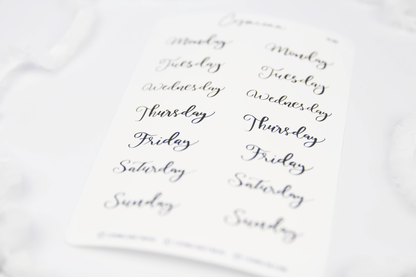 Monday Monday
Tuesday Tuesday
Wednesday Wednesday
Thursday Thursday
Friday Friday
Saturday Saturday
Sunday Sunday